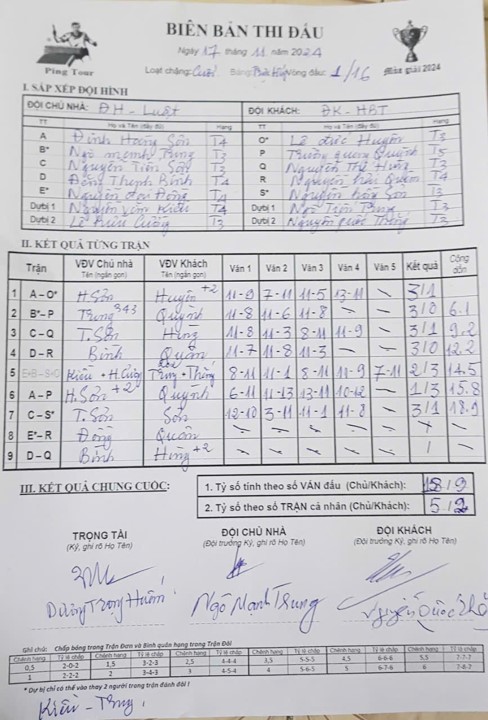 BIÊN BẢN THI ĐẤU
Ngày 17 tháng 11 năm 2024
Ping Tour
Loại chặng: Cuối Bảng: Vòng đấu: 1/16 Mùa giải 2024
I. SẮP XẾP ĐỘI HÌNH
ĐỘI CHỦ NHÀ: ĐH - Luật ĐỘI KHÁCH: ĐK - HBT
TT Họ và Tên (đầy đủ) Hạng TT Họ và Tên (đầy đủ) Hạng
A Đinh Hoàng Sơn T4 O* Lê đức Huyên T3
B* Ngô mạnh Trung T3 P Trương quang Quỳnh T5
C Nguyễn Tiến Sơn T3 Q Nguyễn Thế Hưng T3
D Đặng Thịnh Bình T4 R Nguyễn Quân T4
E* Nguyễn Đông T4 S* Nguyễn Sơn T3
Dự bị 1 Nguyễn văn Kiều T4 Dự bị 1 Ngô Tiến Trung T3
Dự bị 2 Lê Hữu Cường T3 Dự bị 2 Nguyễn quốc Thắng T3
II. KẾT QUẢ TỪNG TRẬN
Trận VĐV Chủ nhà Tên (ngắn gọn) VĐV Khách Tên (ngắn gọn) Ván 1 Ván 2 Ván 3 Ván 4 Ván 5 Kết quả Cộng dồn
1 A – O* H.Sơn Huyên +2 11-9 7-11 11-5 13-11 - 3/1
2 B* – P Trung 343 Quỳnh 11-8 11-6 11-8 - - 3/0 6.1
3 C – Q T.Sơn Hưng 11-8 11-3 8-11 11-9 - 3/1 9.2
4 D – R Bình Quân 11-7 11-8 11-3 - - 3/0 12.2
5 E+B – S+O Kiều + H.Cường Trung + Thắng 8-11 11-1 8-11 11-9 7-11 2/3 14.5
6 A – P H.Sơn +2 Quỳnh 6-11 11-13 13-11 10-12 - 1/3 15.8
7 C – S* T.Sơn Sơn 12-10 3-11 11-1 11-8 - 3/1 18.9
8 E* – R Đông Quân - - - - -
9 D – Q Bình Hưng +2 - - - - -
III. KẾT QUẢ CHUNG CUỘC:
1. Tỷ số tính theo số VÁN đấu (Chủ/Khách): 18/9
2. Tỷ số theo số TRẬN cá nhân (Chủ/Khách): 5/2
TRỌNG TÀI ĐỘI CHỦ NHÀ ĐỘI KHÁCH
(Ký, ghi rõ Họ Tên) (Đội trưởng Ký, ghi rõ Họ Tên) (Đội trưởng Ký, ghi rõ Họ Tên)
Dương Trọng Huấn Ngô Mạnh Trung Nguyễn Quốc
Ghi chú: Chấp bóng trong Trận Đơn và Bình quân hạng trong Trận Đôi
Chênh hạng Tỷ lệ chấp Chênh hạng Tỷ lệ chấp Chênh hạng Tỷ lệ chấp Chênh hạng Tỷ lệ chấp Chênh hạng Tỷ lệ chấp Chênh hạng Tỷ lệ chấp
0,5 2-0-2 1,5 3-2-3 2,5 4-4-4 3,5 5-5-5 4,5 6-6-6 5,5 7-7-7
1 2-2-2 2 3-4-3 3 4-5-4 4 5-6-5 5 6-7-6 6 7-8-7
* Dự bị chỉ có thể vào thay 2 người trong trận đánh đôi !
Kiều - Trung,